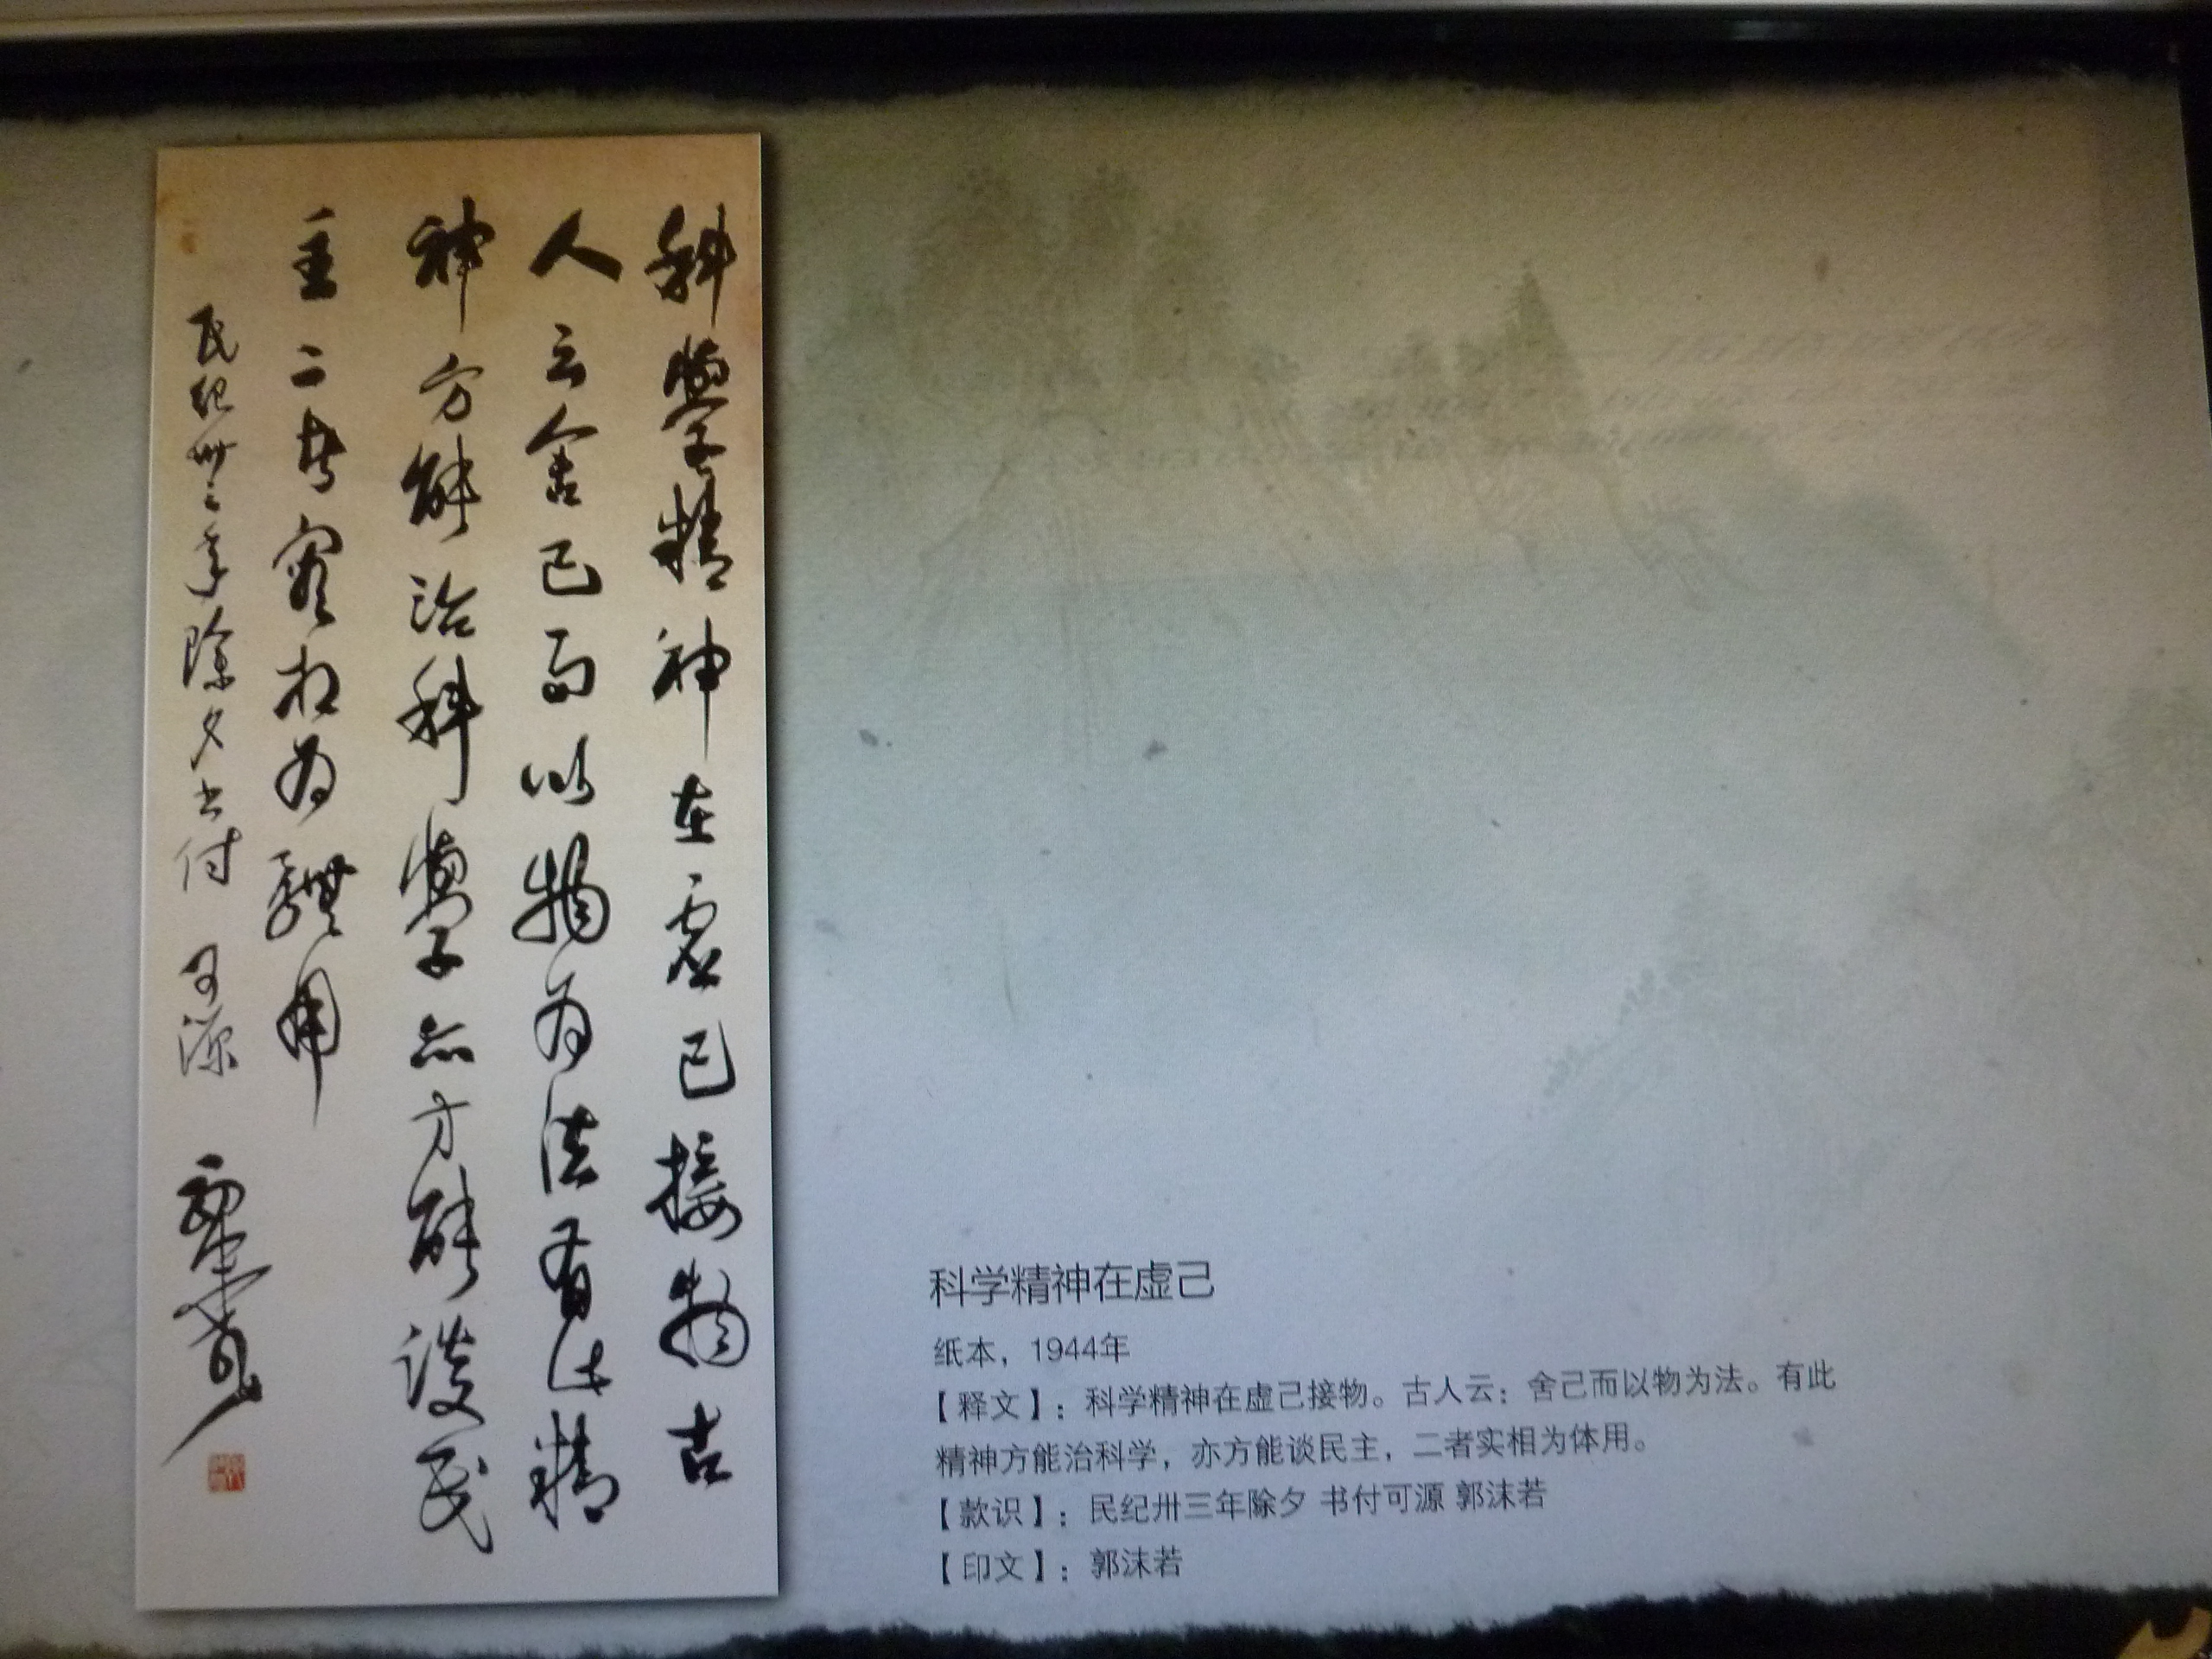 科學精神在虛己接物古
人云舍己而以物為法有此精
神方能治科學亦方能談民
主二者實相為體用
民紀卅三年除夕書付可源 郭沫若
科学精神在虚己
纸本，1944年
【释文】：科学精神在虚己接物。古人云：舍己而以物为法。有此
精神方能治科学，亦方能谈民主，二者实相为体用。
【款识】：民纪卅三年除夕 书付可源 郭沫若
【印文】：郭沫若